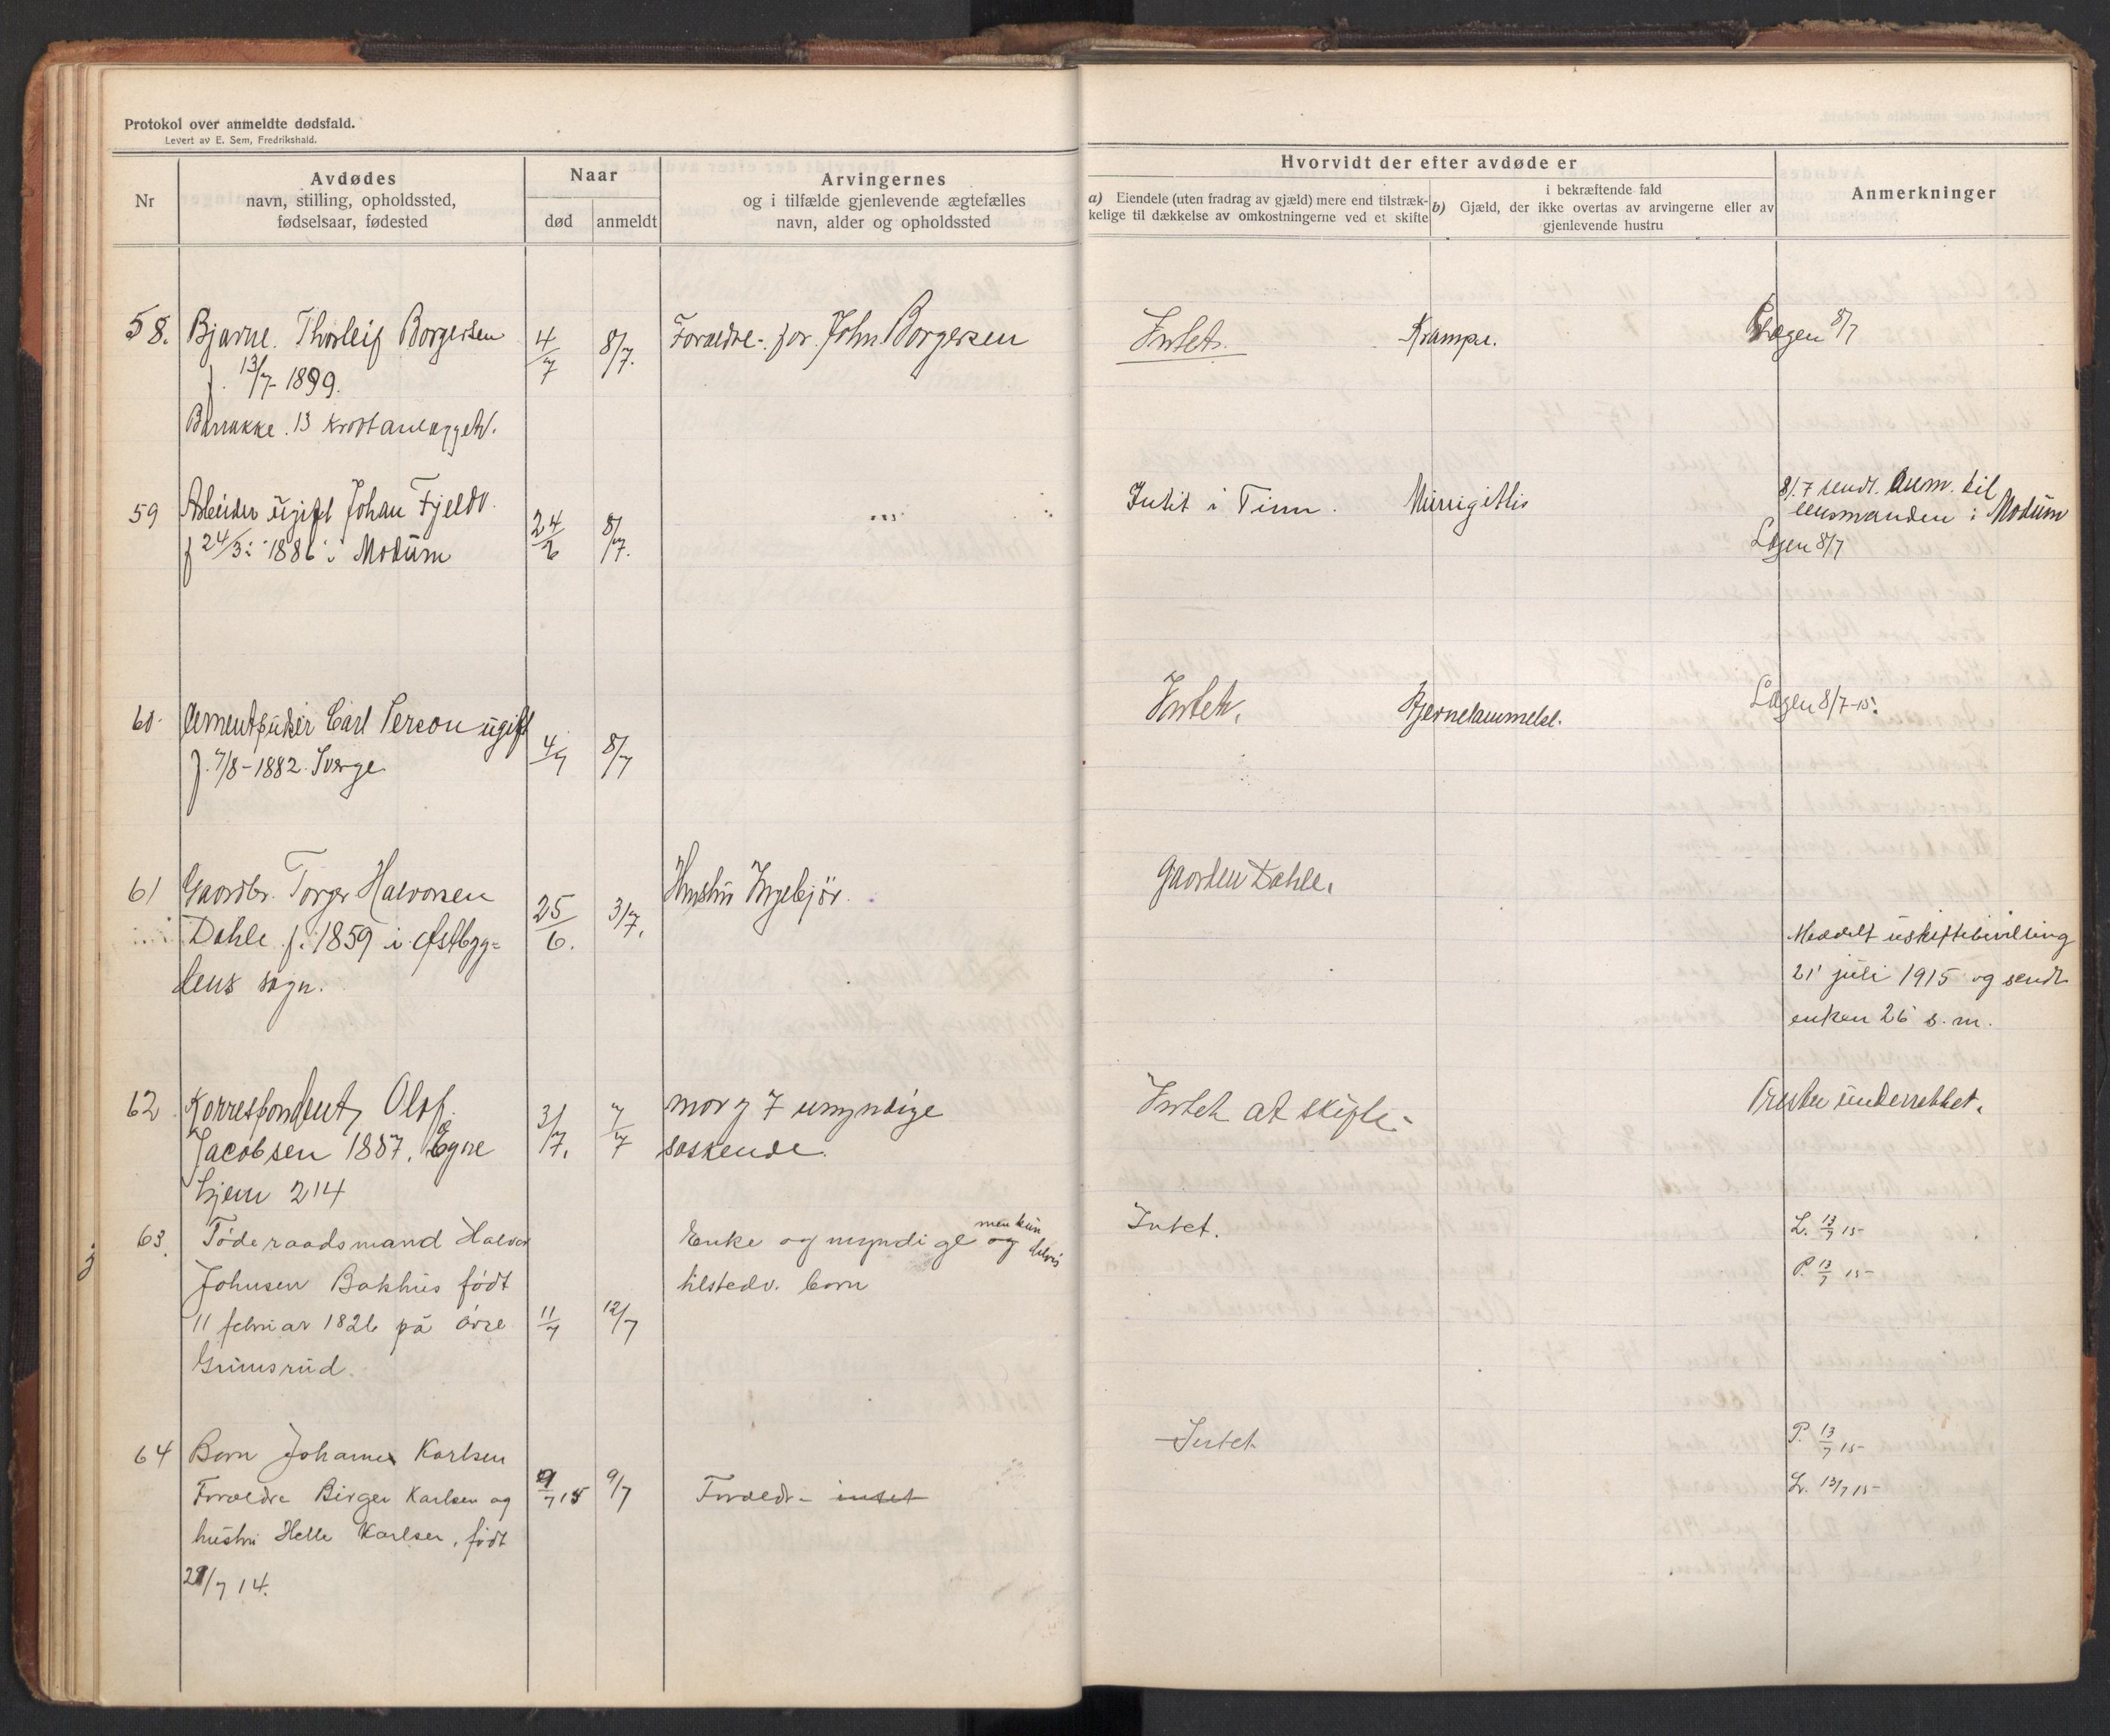 Protokol over anmeldte dødsfald.
Levert av E. Sem, Fredrikshald.
Nr
Avdødes
navn, stilling, opholdssted,
fødselsaar, fødested
Naar
død
anmeldt
Arvingernes
og i tilfælde gjenlevende ægtefælles
navn, alder og opholdssted
Hvorvidt der efter avdøde er
a) Eiendele (uten fradrag av gjæld) mere end tilstræk-
kelige til dækkelse av omkostningerne ved et skifte
i bekræftende fald
b) Gjæld, der ikke overtas av arvingerne eller av
gjenlevende hustru
Anmerkninger
58. Bjarne Thorleif Borgersen
f. 13/7-1899.
Barrakke. 13
4/7
8/7.
Forældre-. for. John Borgersen
Intet.
Krampe.
Lægen 8/7
59 Arbeider ugift Johan Fjeldv.
f 24/3 1886 i Modum
24/6
8/7.
Intet i Tinn.
8/7 sendt. anm. til
lensmanden i Modum
Lægen 8/7
60. Carl Person ugift
f. 7/8-1882. Sverge
4/7
8/7
Intet.
Lægen 8/7-15.
61 Gaardbr. Torger Halvorsen
Dahle f. 1859 i Østbyg=
dens sogn.
25/6.
3/7.
Hustru Ingebjør.
Gaarden Dahle.
Meddelt uskiftebevilling
21' juli 1915 og sendt
enken 26' s. m.
62. Korrespondent, Olaf
Jacobsen 1887. Egne
hjem 214
3/7.
7/7
mor og 7 umyndige
søskende.
Intet at skifte.-
Presten underrettet.
63. Føderaadsmand Halvor
Johnsen Bakhus født
11 februar 1826 på øvre
Grimsrud.
11/7
12/7
Enke og myndige og men kun delvis
tilstedv. børn
Intet.
L. 13/7 15-
P. 13/7 15-
64 Barn Johannes Karlsen
Forældre Birger Karlsen og
hustru Helle Karlsen, født
21/7 14.
9/7 15
9/7
Foreldr- intet
Intet
P. 13/7 15-
L. 13/7 15-